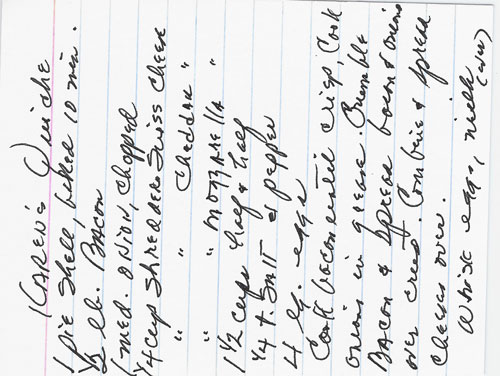 KAREN'S Quiche
1 pie shell, baked 10 min.
1/2 lb. Bacon
1 med. ONION, chopped
1/4 cup SHREDDED Swiss Cheese
" " Cheddar "
" " MOZZARELLA "
1 1/2 cups half & half
1/4 t. SAlt & pepper
4 lg. eggs
Cook bacon until crisp, Cook
onions in grease. Crumble
Bacon & Spread bacon & onions
over crust. Combine & spread
cheeses over.
Whisk eggs, milk